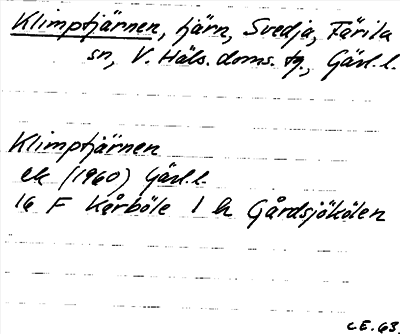 Klimptjärnen, tjärn, Svedja, Färila
sn, V. Häls. doms. tg., Gävl.l.
Klimptjärnen
ek (1960) Gävl.l.
16 F Kårböle 1 h Gårdsjökölen
CE. 63.